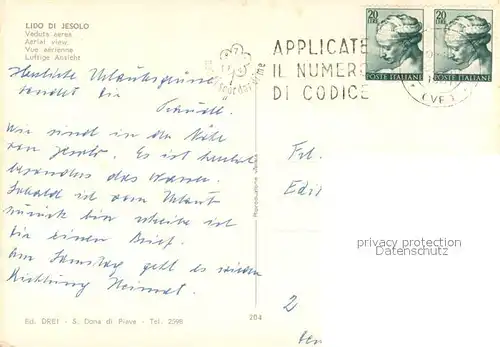 LIDO DI JESOLO
Veduta aerea
Aerial view
Vue aérienne
Luftige Ansicht
Herzliche Urlaubsgrüsse
sendet Dir
Wir sind in der Nähe
von Jesolo. Es ist herrlich
besonders das Wasser.
Sobald ich vom Urlaub
zurück bin schreibe ich
Dir einen Brief.
Am Samstag geht es wieder
Richtung Heimat.
Ed. DREI - S. Donà di Piave - Tel. 2598
204
20
LIRE
POSTE ITALIANE
20
LIRE
POSTE ITALIANE
APPLICATE
IL NUMERO
DI CODICE
(VE)
Frl.
Edi
2
privacy protection
Datenschutz